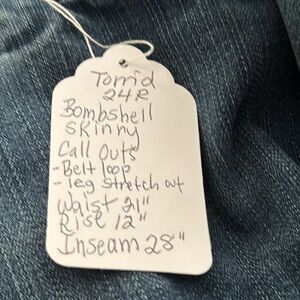 Torrid
24R
Bombshell
Skinny
Call Outs
-Belt loop
-leg stretch out
Waist 21"
Rise 12"
Inseam 28"